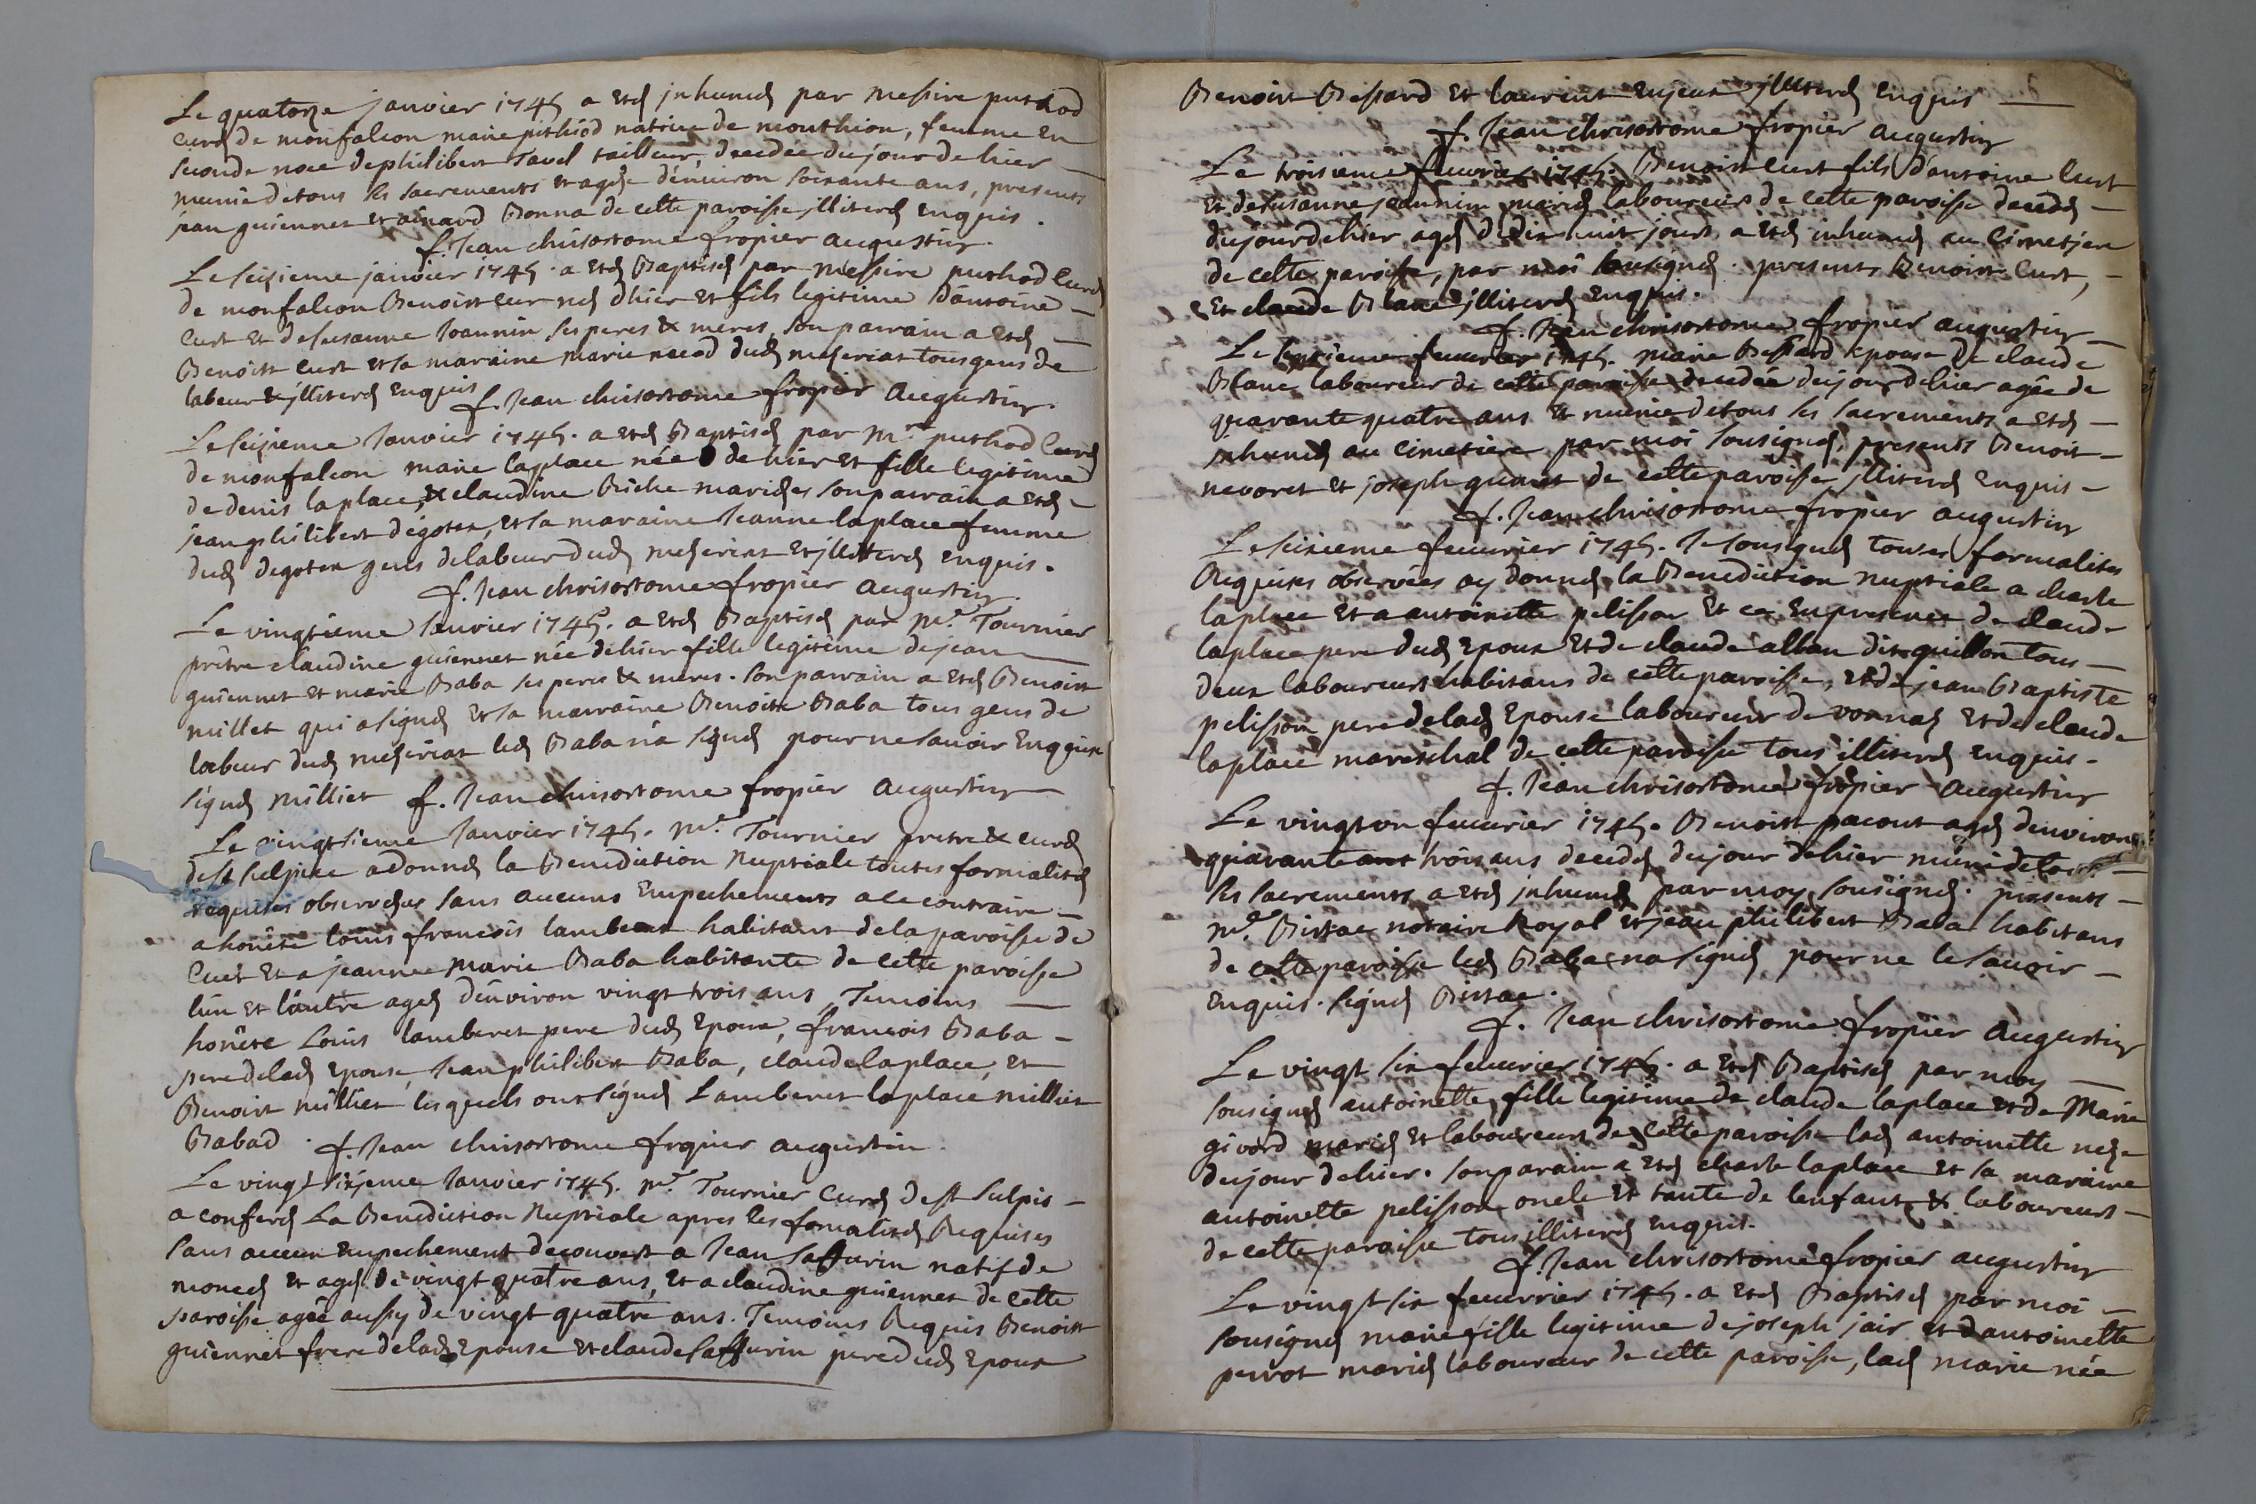 Le quatorze janvier 1745 a eté inhumée par messire puthod
curé de monfalcon marie pithiod native de monthion, femme en
seconde noce de philibert Tavel tailleur, decedée du jour de hier
munie de tous ses sacrements et agée d'environ soixante ans, presents
jean guiennet et ainard Bonna de cette paroisse illiterés enquis.
f. Jean chrisostome fropier augustin.
Le seisieme janvier 1745. a eté Baptisé par messire puthod Curé
de monfalcon Benoit curt né d'hier et fils legitime d'antoine
curt et de susanne Joannin ses peres & meres, son parrain a eté
Benoitt curt et sa maraine marie nacod dud meseriat tous gens de
labeur & illiterés enquis f. Jean chrisostome fropier Augustin.
Le seisieme Janvier 1745. a eté Baptisé par mre puthod Curé
de monfalcon marie laplace née de hier et fille legitime
de denis la place, & claudine Buche mariés son parrain a eté
jean philibert degoten, et sa maraine Jeanne laplace femme
dud degoten gens de labeur dud meseriat et illiterés enquis.
f. Jean chrisostome fropier augustin.
Le vingtieme Janvier 1745. a eté Baptisé par mr. Tournier
prêtre claudine guiennet née de hier fille legitime de jean
guiennet et marie Baba ses peres & meres. son parrain a eté Benoitt
millet qui a signé et sa marraine Benoite Baba tous gens de
labeur dud meseriat led Baba n'a signé pour ne savoir enquise
signé milliet f. Jean chrisostome fropier augustin
Le vingtsieme Janvier 1745. mr. Tournier pretre & curé
de st sulpice a donné la Benediction Nuptiale toutes formalités
requises observées sans aucuns Empechements a le contraire
a honête louis françois lamberet habitant de la paroisse de
Cuet et a jeanne marie Baba habitante de cette paroisse
l'un et l'autre agés d'environ vingt trois ans, Temoins
honête Louis lamberet pere dud Epoux, francois Baba
pere de lad Epouse, Jean philibert Baba, claude laplace, et
Benoit millier lesquels ont signé Lamberet laplace milliet
Babad. f. Jean chrisostome fropier augustin.
Le vingt sixjeme Janvier 1745. mr. Tournier Curé de st Sulpis
a conferé La Benediction Nuptiale apres les fomalités Requises
sans aucun Empechement decouvert a Jean Saffurin natif de
moncé et agé de vingt quatre ans, et a claudine guiennet de cette
paroisse agée aussy de vingt quatre ans. Temoins Requis Benoitt
guiennet frere de lad Epouse et claude Saffurin pere dud Epoux
Benoitt Bessard et laurent enjeux illiterés Enquis
f. Jean chrisostome fropier augustin
Le troisieme feuvrier 1745. Benoitt curt fils d'antoine Curt
et de susanne joannin mariés laboureurs de cette paroisse decedé
du jour de hier agé de dix huit jours a eté inhumé au Cimetjere
de cette paroisse, par moi sousigné. presents Benoitt Curt,
Et claude Blanc illiterés enquis.
f. Jean chrisostome fropier augustin
Le feuvrier 1745. marie Bessard epouse de claude
Blanc laboureur de cette paroisse decedée du jour de hier agée de
quarante quatre ans et munie de tous ses sacrements a eté
inhumée au cimetiere par moi sousigné, presents Benoit
nevoret et joseph de cette paroisse illiterés Enquis
f. Jean chrisostome fropier augustin
Le seisieme feuvrier 1745. Je sousigné toutes formalites
Requises observées ay donné la Benediction nuptiale a charle
laplace et a antoinette pelisson et ce En presence de claude
laplace pere dud Epoux et de claude alban dit quillon tous
deux laboureurs habitans de cette paroisse, et de jean Baptiste
pelisson pere de lad Epouse laboureur de vonnas et de claude
laplace mareschal de cette paroisse tous illiterés enquis.
f. Jean chrisostome fropier augustin
Le vingt un feuvrier 1745. Benoitt pacout agé d'environ
quarante trois ans decedé du jour de hier muni de tous
ses sacrements a eté inhumé par moy sousigné. presents
mr. Bistac notaire Royal et jean philibert Baba habitans
de cette paroisse led Baba n'a signé pour ne le savoir
enquis. signé Bistac.
f. Jean chrisostome fropier augustin
Le vingt six feuvrier 1745. a eté Baptisé par moy
sousigné antoinette, fille legitime de claude laplace et de Marie
givord mariés et laboureurs de cette paroisse lad antoinette née
du jour de hier. son parain a eté charle laplace et sa maraine
antoinette pelisson oncle et tante de l'enfant & laboureurs
de cette paroisse tous illiterés enquis.
f. Jean chrisostome fropier augustin
Le vingt six feuvrier 1745. a eté Baptisé par moi
sousigné marie fille legitime de joseph jair et d'antoinette
perrot mariés laboureur de cette paroisse, lad marie née